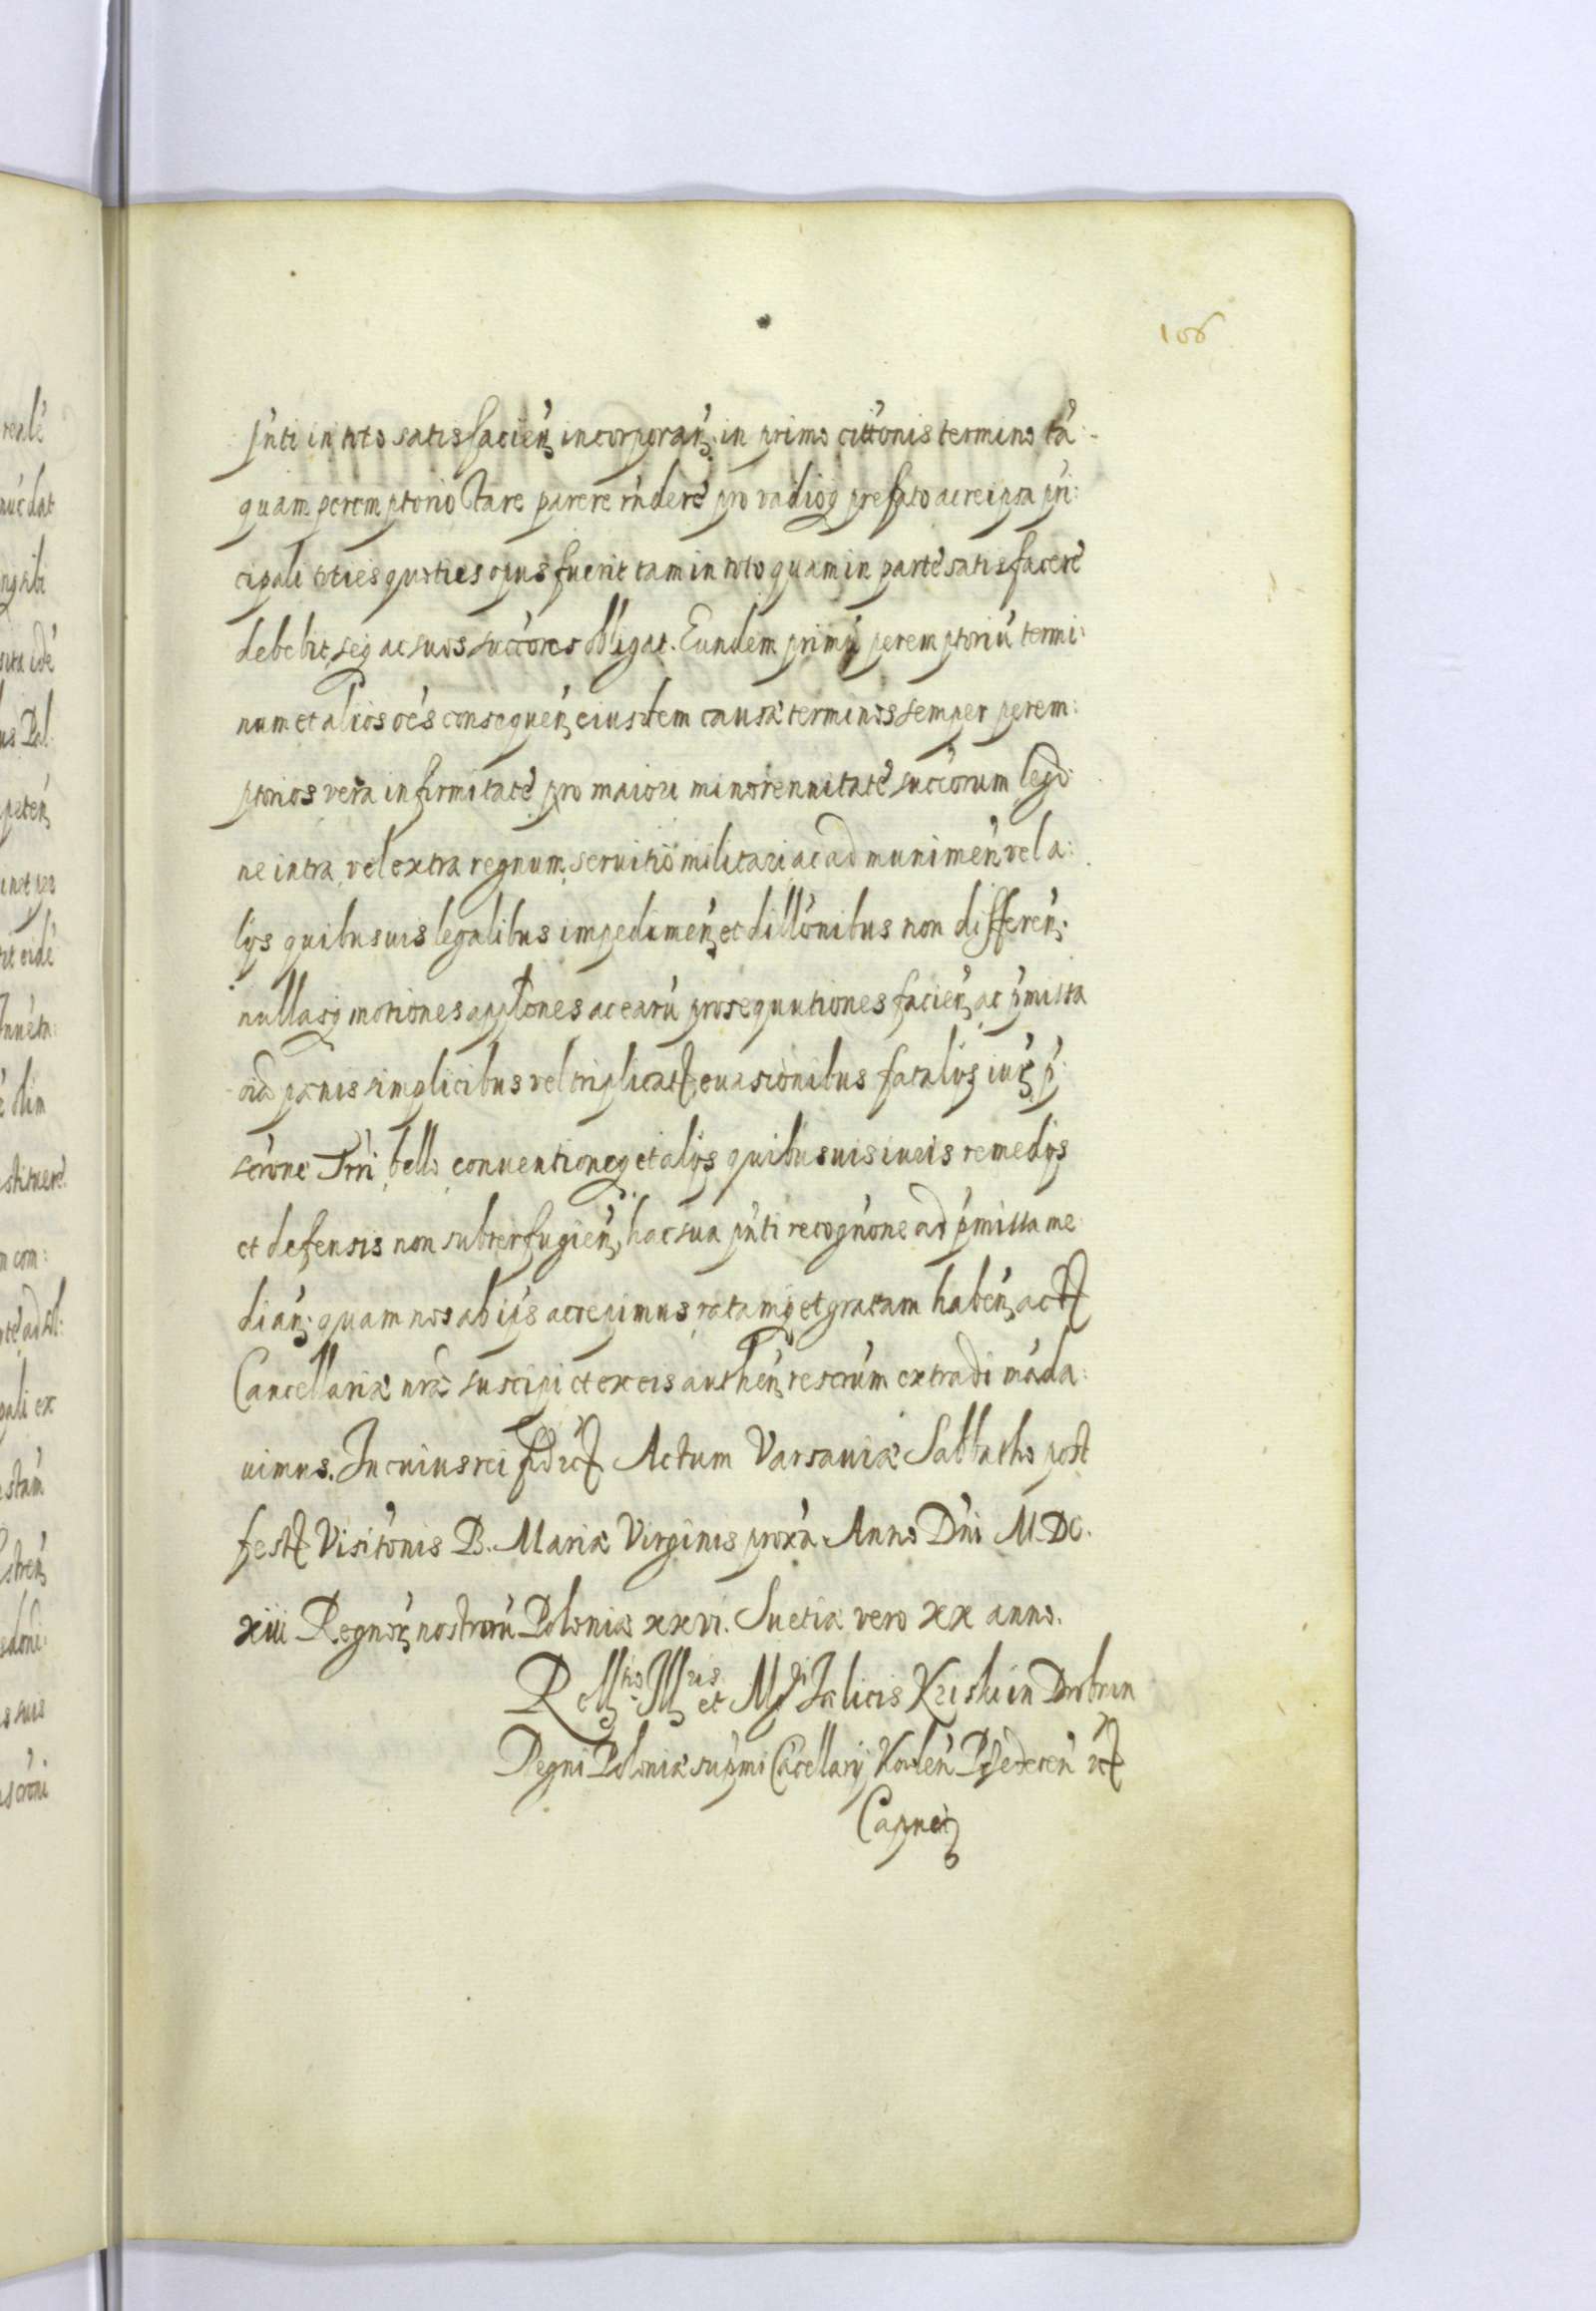 106
p̃nti in toto satisfacień incorporań. in primo citt̃onis termino tã
quam peremptorio stare parere r̃nderè pro vadioq prefato ac re ipsa pri:
cipali toties quoties opus fuerit tam in toto quam in partè satisfacerè
debebit seq ac suos succ̃ores obligat. Eundem primũ peremptoriũ termi:
num et alios oẽs consequeń eiusdem causæ terminos semper perem:
ptorios vera infirmitatè pro maiori minorennitatè succ̃orum
ne intra vel extra regnum seruitio militari ac ad munimeń vel a:
lys quibusuis legalibus impedimeń et dill̃onibus non differeń.
nullasq motiones app̃lones ac earũ prosequutiones facień ac p̃missa
oĩa pænis simplicibus vel triplicat euasionibus fatalys iuris p̃:
scr̃one Tr̃ri bello conuentioneq et alys quibusuis iuris remedys
et defensis non subterfugień, hac sua p̃nti recogñone ad p̃missa me
diań: quam nos ab ijs accepimus ratamq et gratam habeń act
Cancellariæ nr̃æ suscipi et ex eis autheń rescr̃um extradi mãda:
uimus. In cuius rei fid Actum Varsauiæ Sabbatho post
fest Visit̃onis B. Mariæ Virginis prox̃a Anno Dñi M.DC.
xiii Regnor̃ nostrorũ Poloniæ xxvi. Suetiæ vero xx anno.
Rel͠l Ill et M Fælicis Kriski in Drobnin
Regni Poloniæ sup̃mi Cãcellarÿ
Capnei